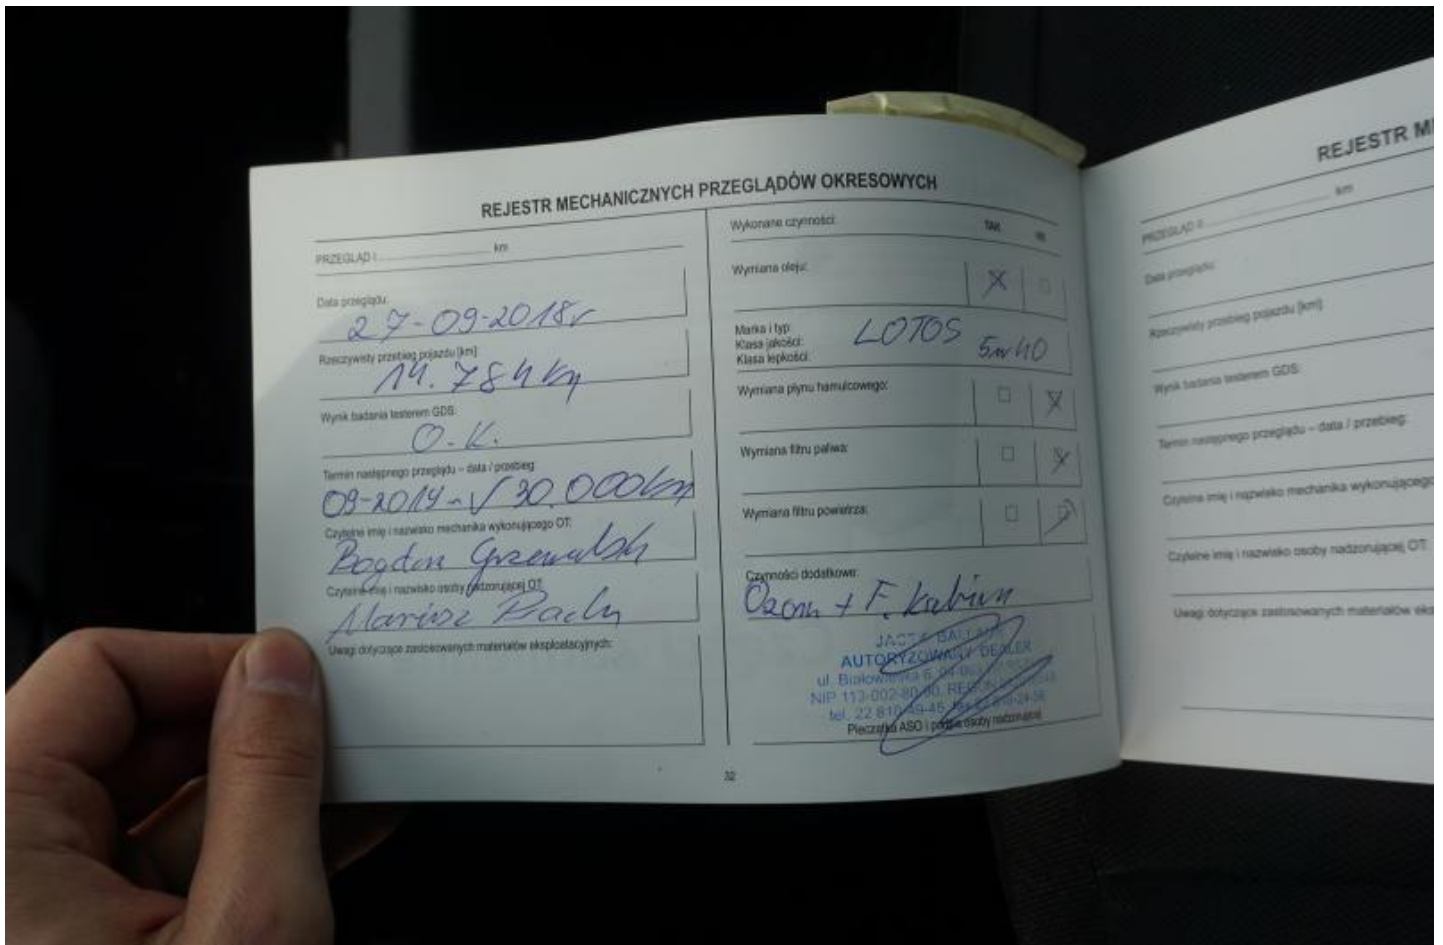 REJESTR MECHANICZNYCH PRZEGLĄDÓW OKRESOWYCH
PRZEGLĄD I ........................ km
Data przeglądu:
27-09-2018r
Rzeczywisty przebieg pojazdu [km]:
14.784 km
Wynik badania testerem GDS:
O.K.
Termin następnego przeglądu – data / przebieg:
09-2019 - √ 30.000 km
Czytelne imię i nazwisko mechanika wykonującego OT:
Bogdan
Czytelne imię i nazwisko osoby nadzorującej OT:
Mariusz
Uwagi dotyczące zastosowanych materiałów eksploatacyjnych:
Wykonane czynności: TAK NIE
Wymiana oleju:
Marka i typ:
Klasa jakości:
Klasa lepkości:
LOTOS 5w40
Wymiana płynu hamulcowego:
Wymiana filtru paliwa:
Wymiana filtru powietrza:
Czynności dodatkowe:
Ozon + F. kabin
AUTORYZOWANY DEALER
NIP 113-002-80-90, REGON
tel. 22 810-49-46,
Pieczątka ASO i podpis osoby nadzorującej
32
REJESTR M
PRZEGLĄD II ........................ km
Data przeglądu:
Rzeczywisty przebieg pojazdu [km]:
Wynik badania testerem GDS:
Termin następnego przeglądu – data / przebieg:
Czytelne imię i nazwisko mechanika wykonującego
Czytelne imię i nazwisko osoby nadzorującej OT:
Uwagi dotyczące zastosowanych materiałów eks